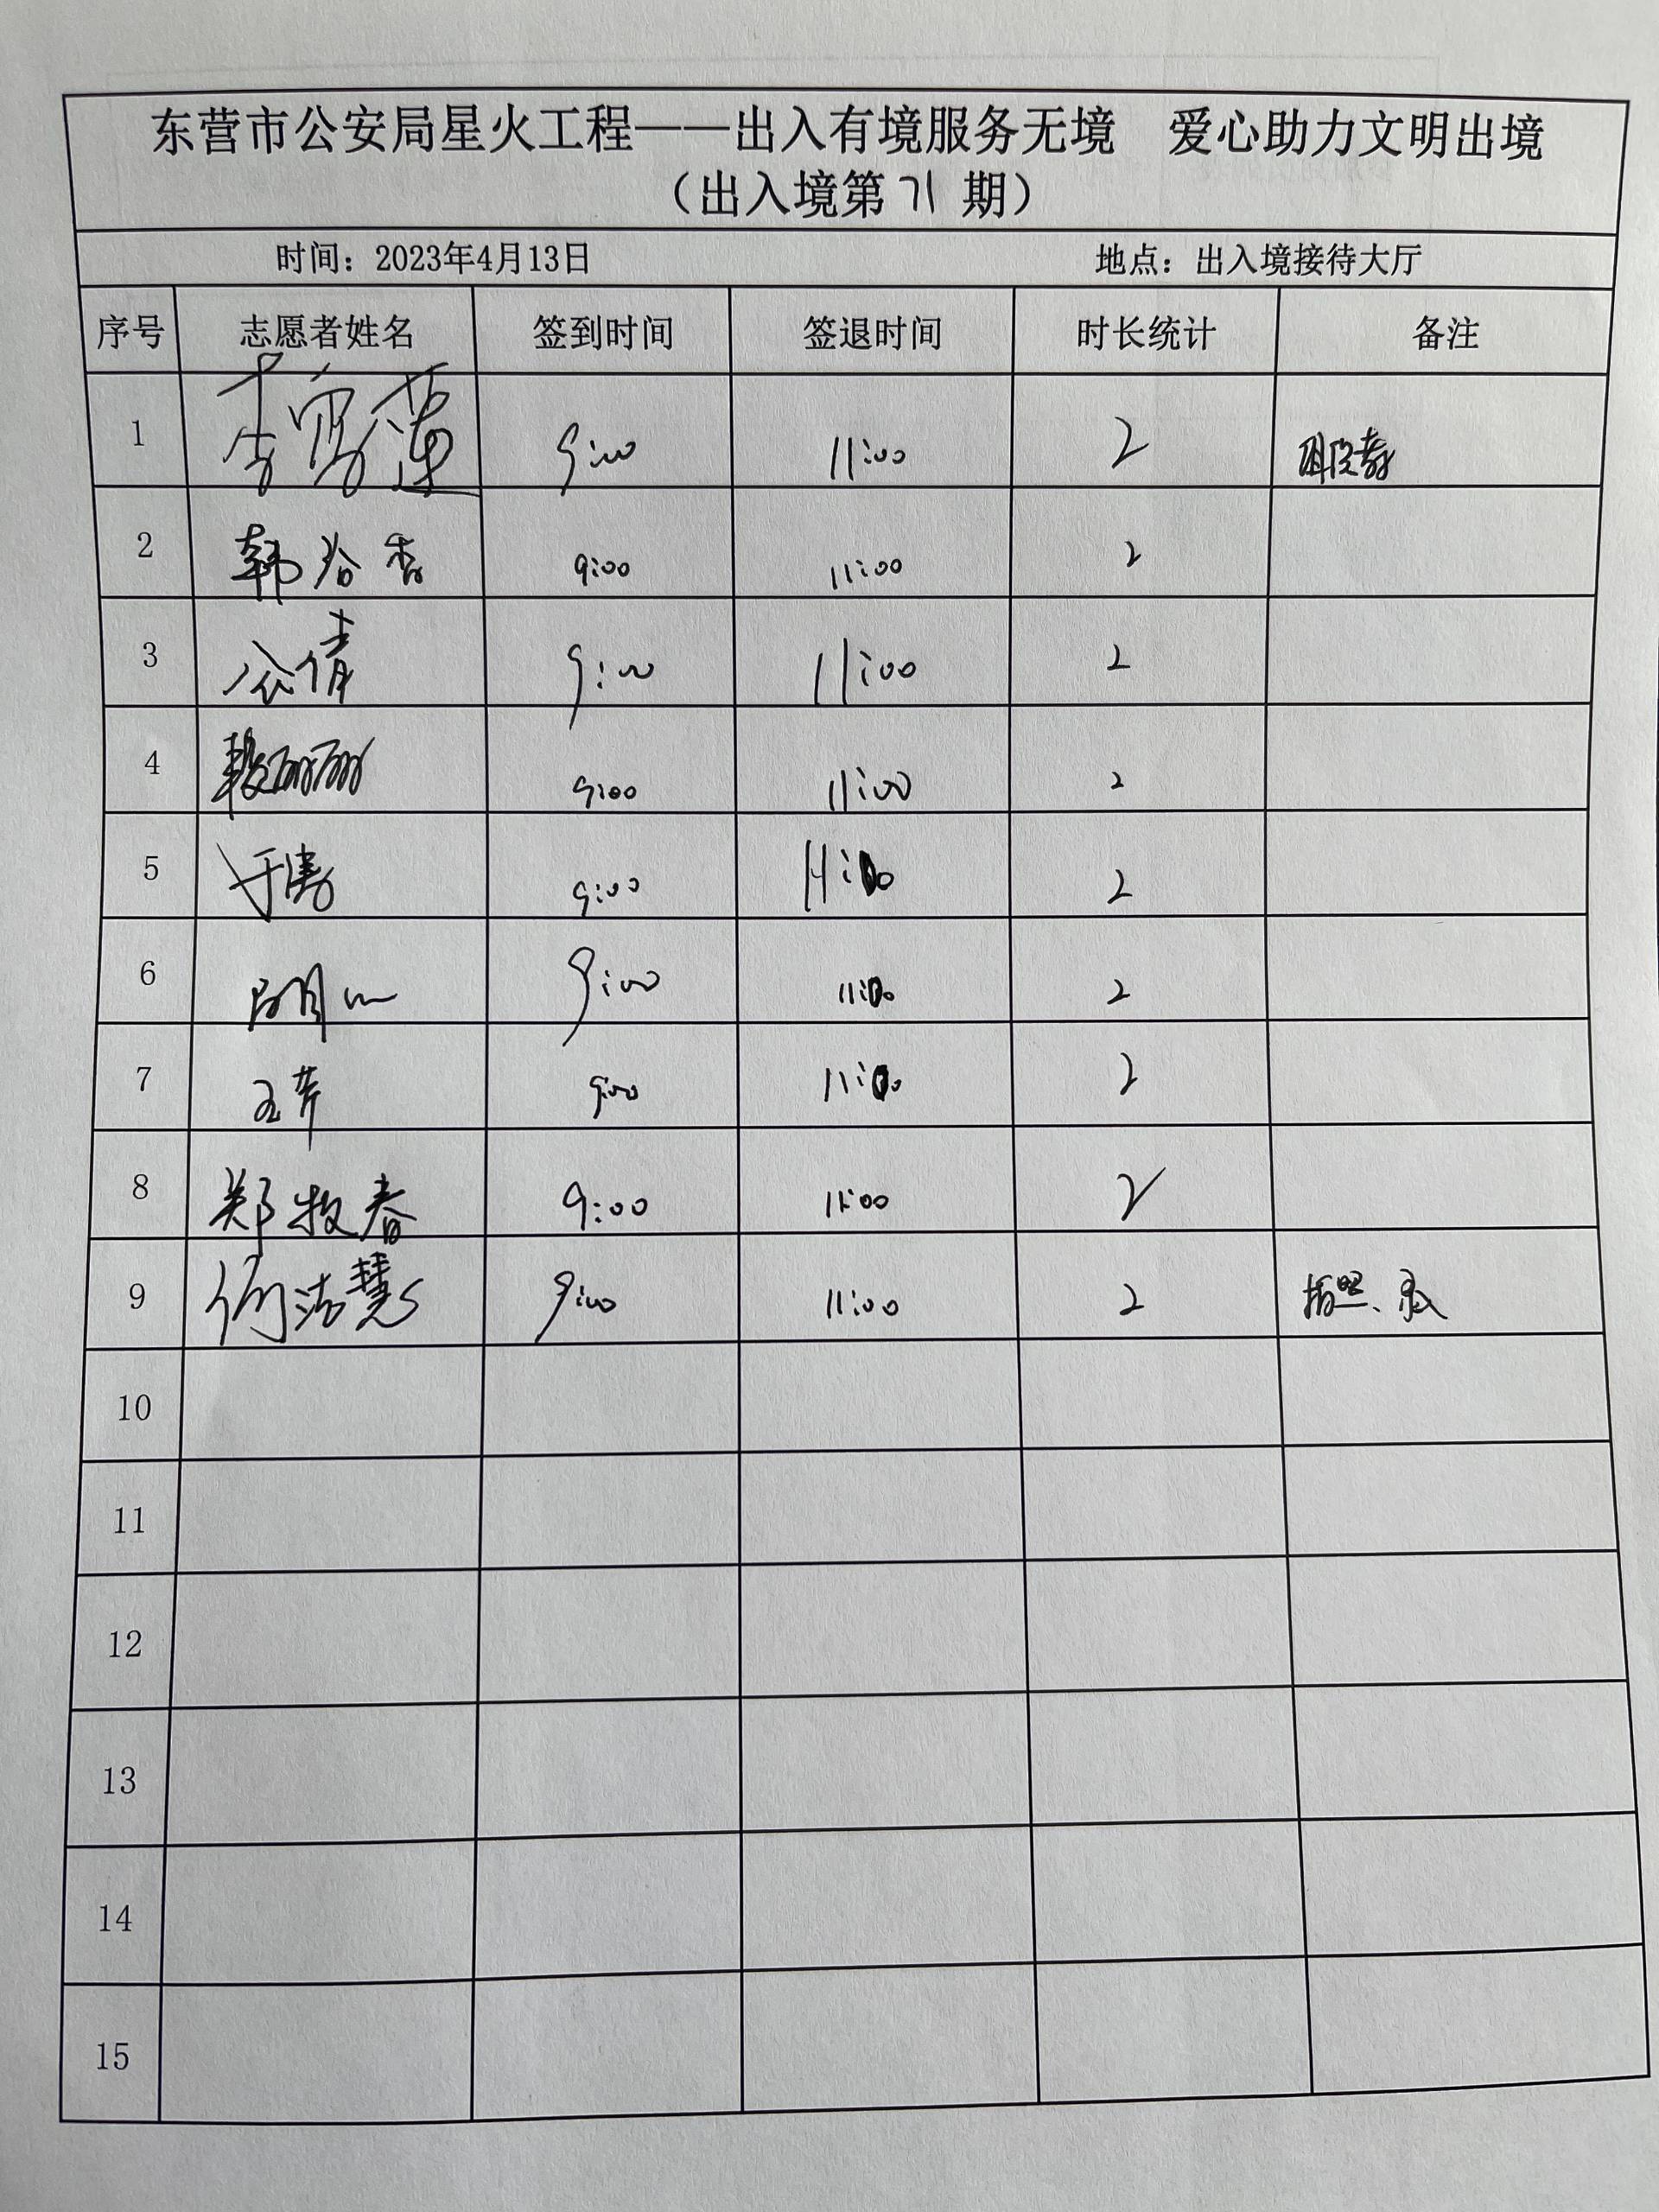 东营市公安局星火工程——出入有境服务无境　爱心助力文明出境
（出入境第 71 期）
时间：2023年4月13日　地点：出入境接待大厅
序号　志愿者姓名　签到时间　签退时间　时长统计　备注
1　9:00　11:00　2
2　韩　香　9:00　11:00　2
3　公倩　9:00　11:00　2
4　段丽丽　9:00　11:00　2
5　于涛　9:00　11:00　2
6　9:00　11:00　2
7　王芹　9:00　11:00　2
8　郑牧春　9:00　11:00　2
9　何洁慧　9:00　11:00　2
10
11
12
13
14
15